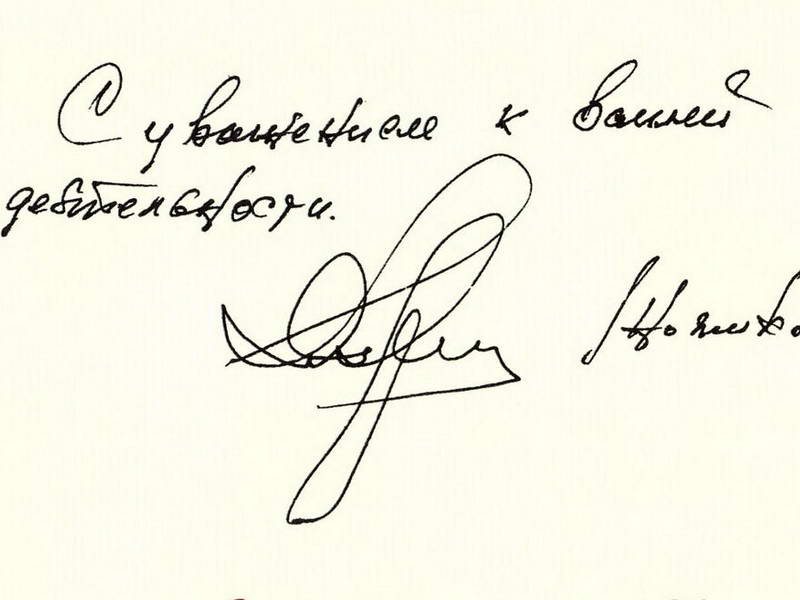 С уважением к вашей
деятельности.